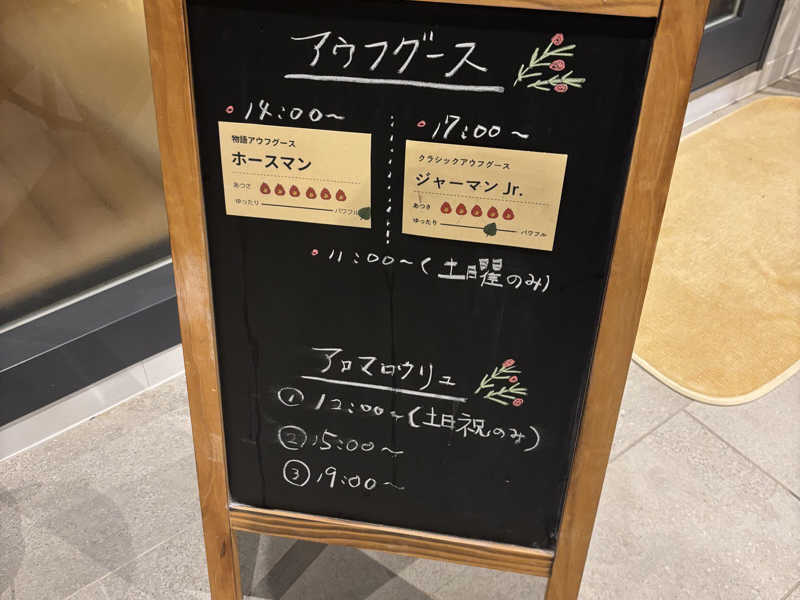 アウフグース
14:00～
物語アウフグース
ホースマン
あつさ
ゆったり パワフル
17:00～
クラシックアウフグース
ジャーマン Jr.
あつさ
ゆったり パワフル
11:00～(土曜のみ)
アロマロウリュ
① 12:00～(土日祝のみ)
② 15:00～
③ 19:00～